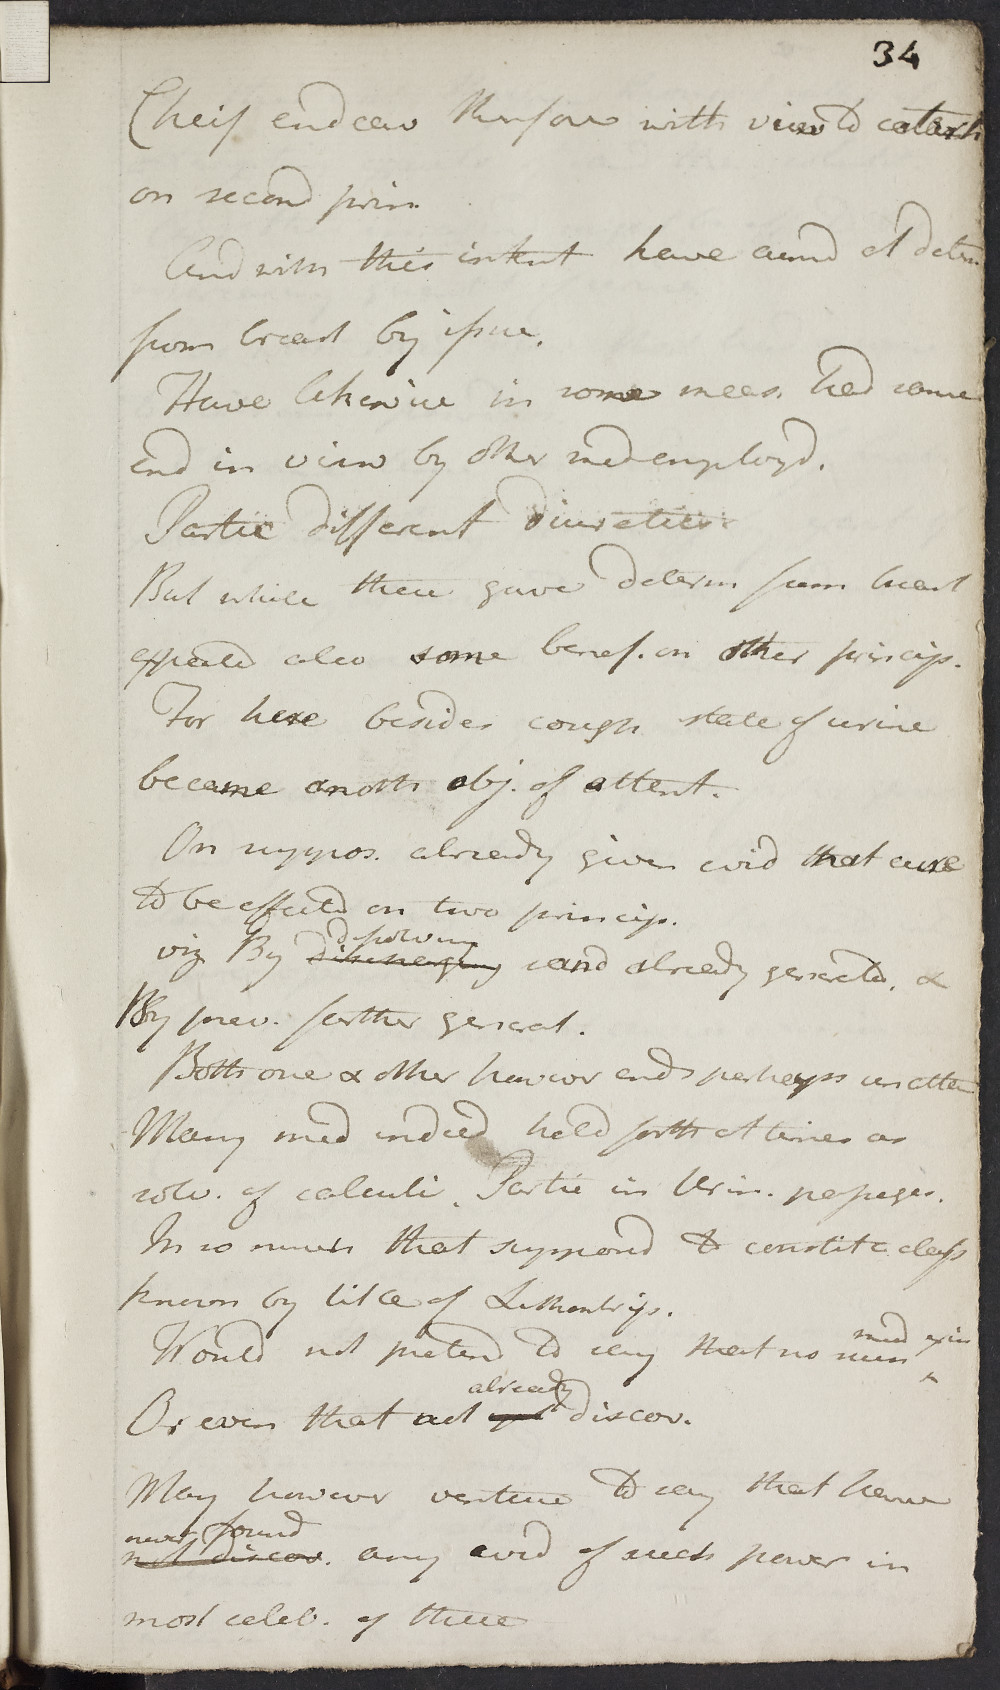 34
Cheif endeav therefore with view to catarrh
on second prin.
And with this intent have aimd at determ
from breast by issue.
Have likewise in some meas. had same
end in view by other med employd.
Partic different diuretics
But while these gave determ from breast
expected also some benef. on other princip.
For here besides cough state of urine
became anoth obj. of attent.
On suppos. already given evid that cure
to be effected on two princip.
dissolving
viz By discharging sand already generated. &
By prev. farther generat.
Both one & other howevr ends perhaps unatta
Many med indeed held forth at times as
solv. of calculi. Partic in Urin. passages.
In so much that supposd to constit a class
known by title of Lithontrip.
Would not pretend to say that no such med exist
already
Or even that not yet discov.
May however venture to say that have
never found
not discov. any evid of such power in
most celeb. of these